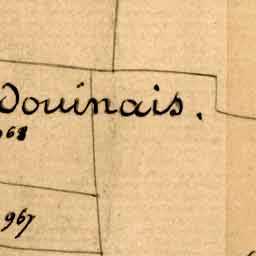 Douinais.
968
967